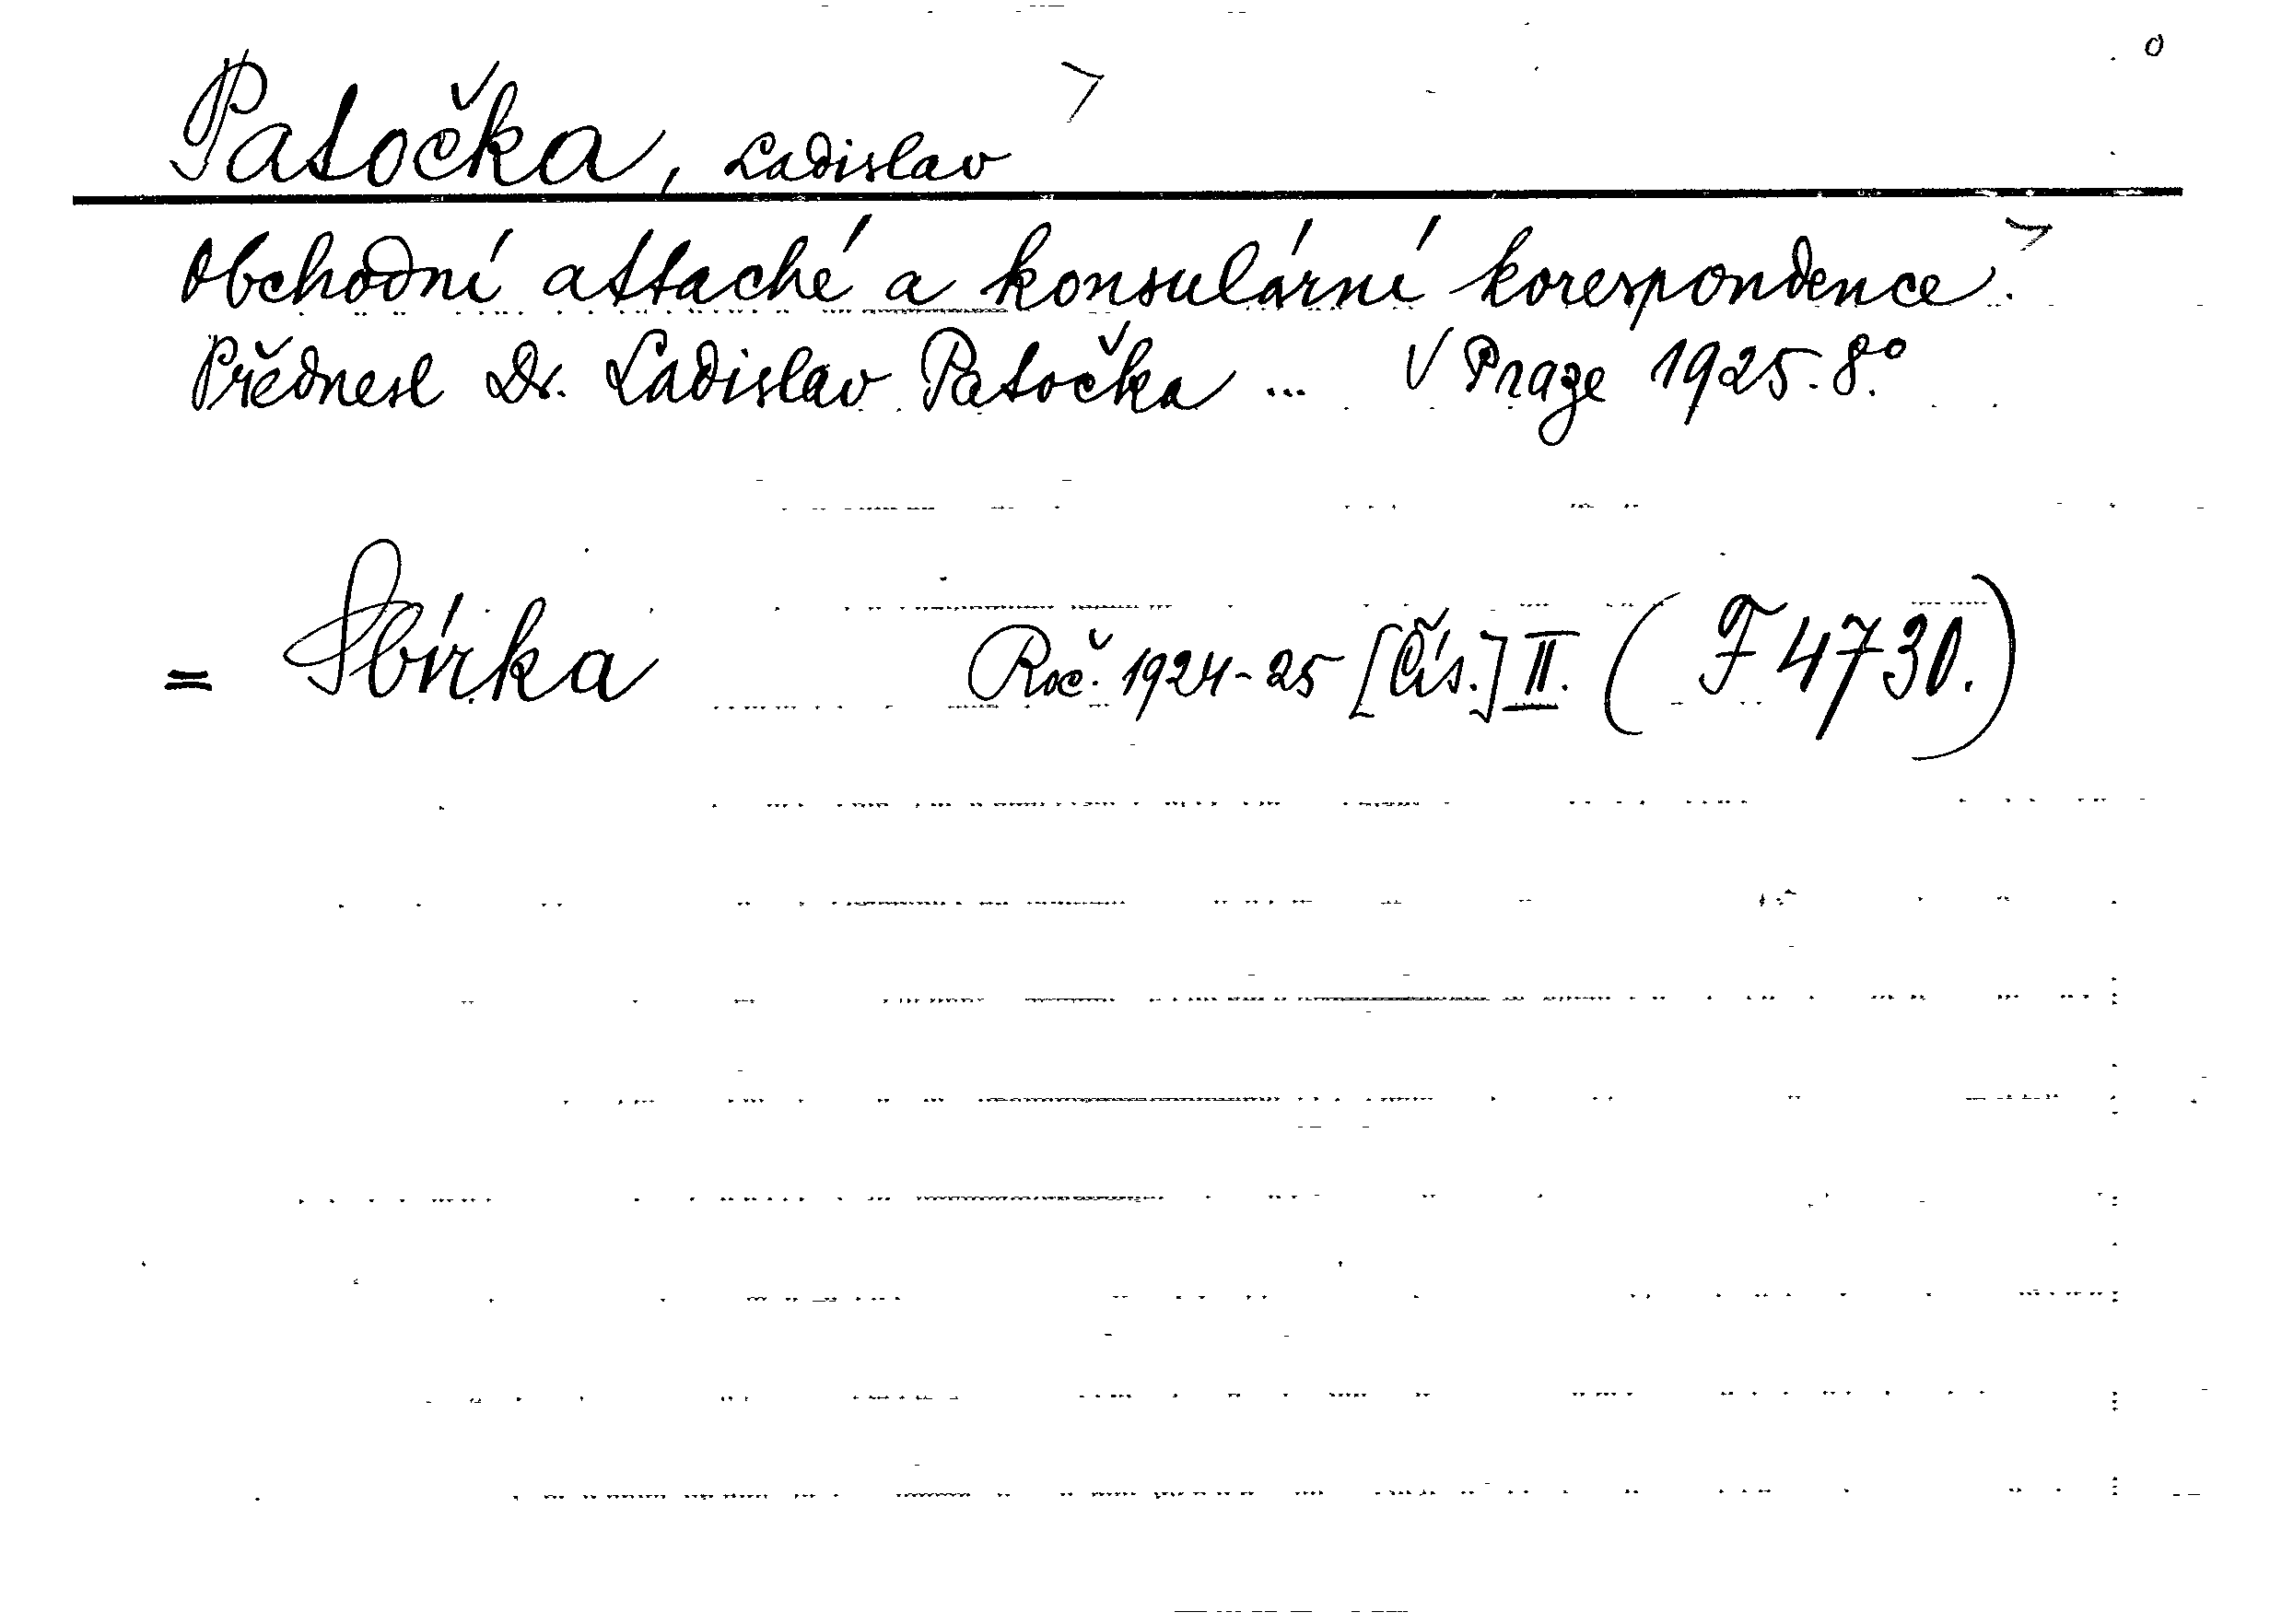 Patočka, Ladislav
Obchodní attaché a konsulární korespondence.
Přednesl Dr. Ladislav Patočka ... V Praze 1925. 8.°
= Sbírka Roč. 1924-25 [Čís.] II. (F 4730.)